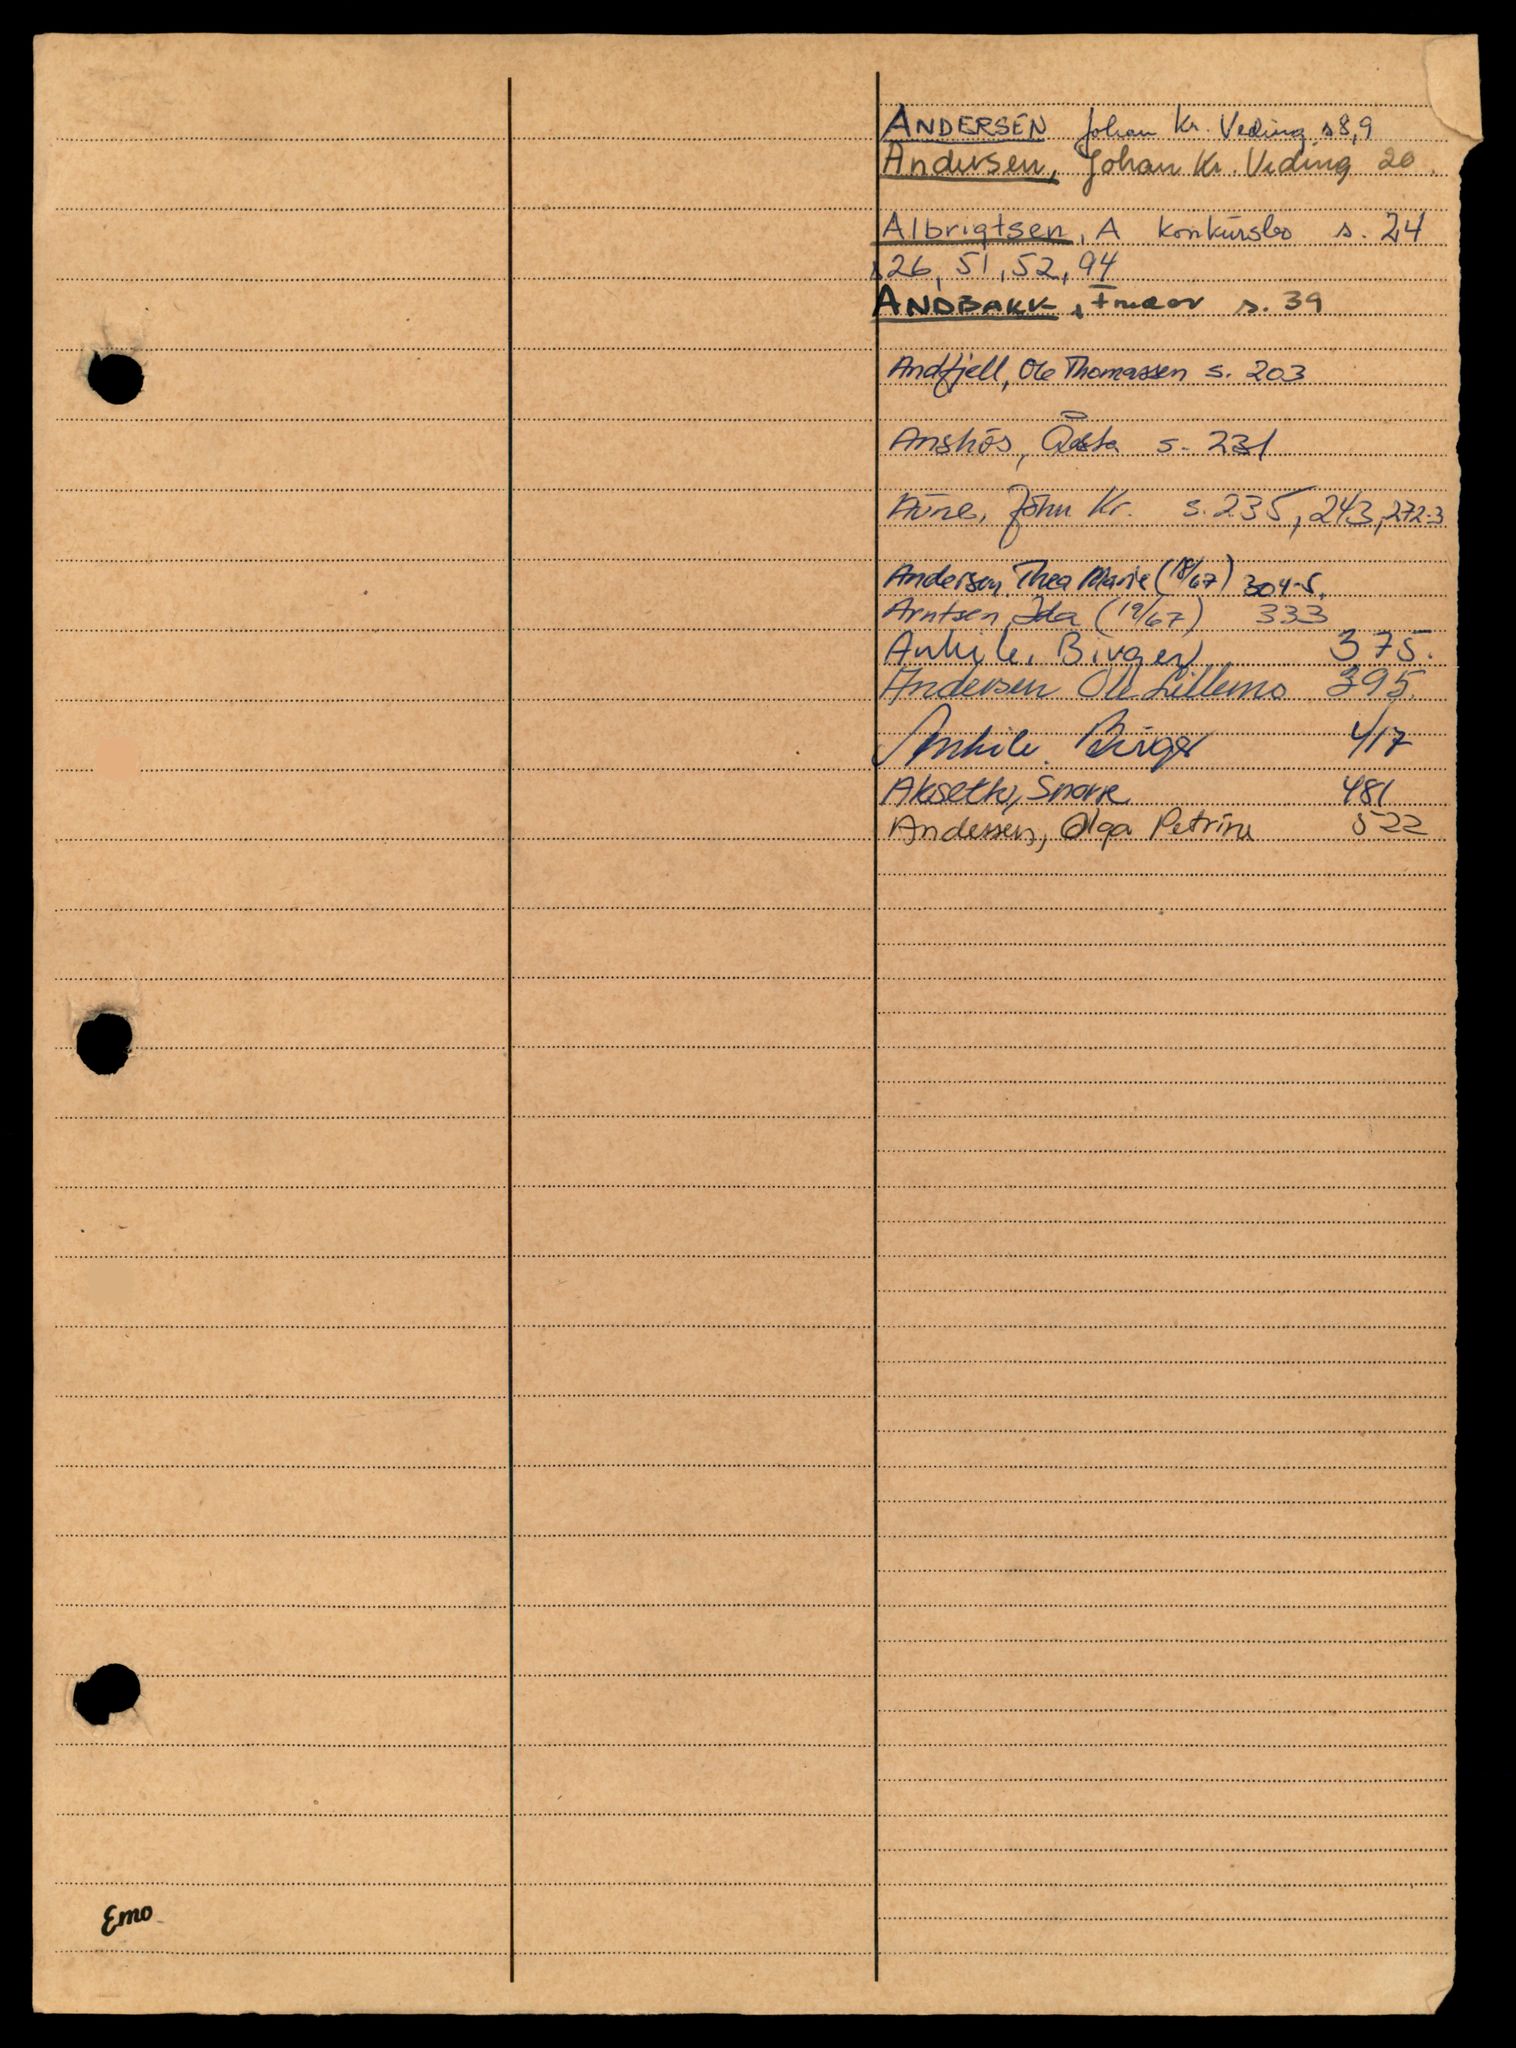 ANDERSEN Johan Kr. Veding s 8,9
Andersen, Johan Kr. Veding 20.
Albrigtsen, A konkursbo s. 24
s 26, 51, 52, 94
ANDBAKK, s. 39
Andfjell, Ole Thomassen s. 203
Gösta s. 231
Aune, John Kr. s. 235, 243, 272-3
Andersen, Thea Marie (18/67) 304-5.
Arntsen, Ida (19/67) 333
Birger 375.
Andersen Ole Lillemo 395.
Birger 417
Aksetk, Snorre 481
Anderssen, Olga Petrine 522
Emo